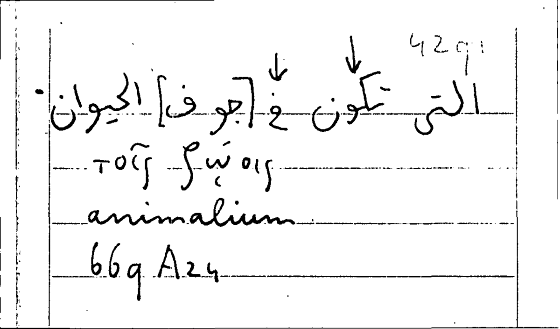 429.
التى تكون فى [جوف] الحيوان.
τοῖς ζῴοις
animalium
669 A24